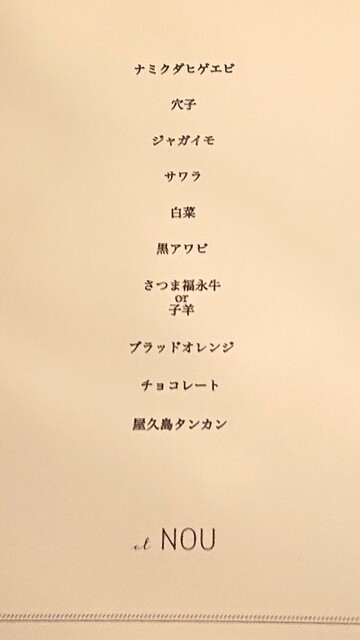 ナミクダヒゲエビ
穴子
ジャガイモ
サワラ
白菜
黒アワビ
さつま福永牛
or
子羊
ブラッドオレンジ
チョコレート
屋久島タンカン
et NOU